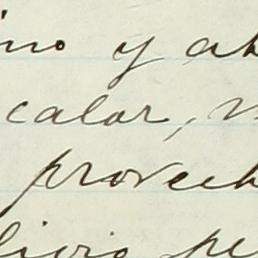 ino y ah
calor, n
provech
licio pe